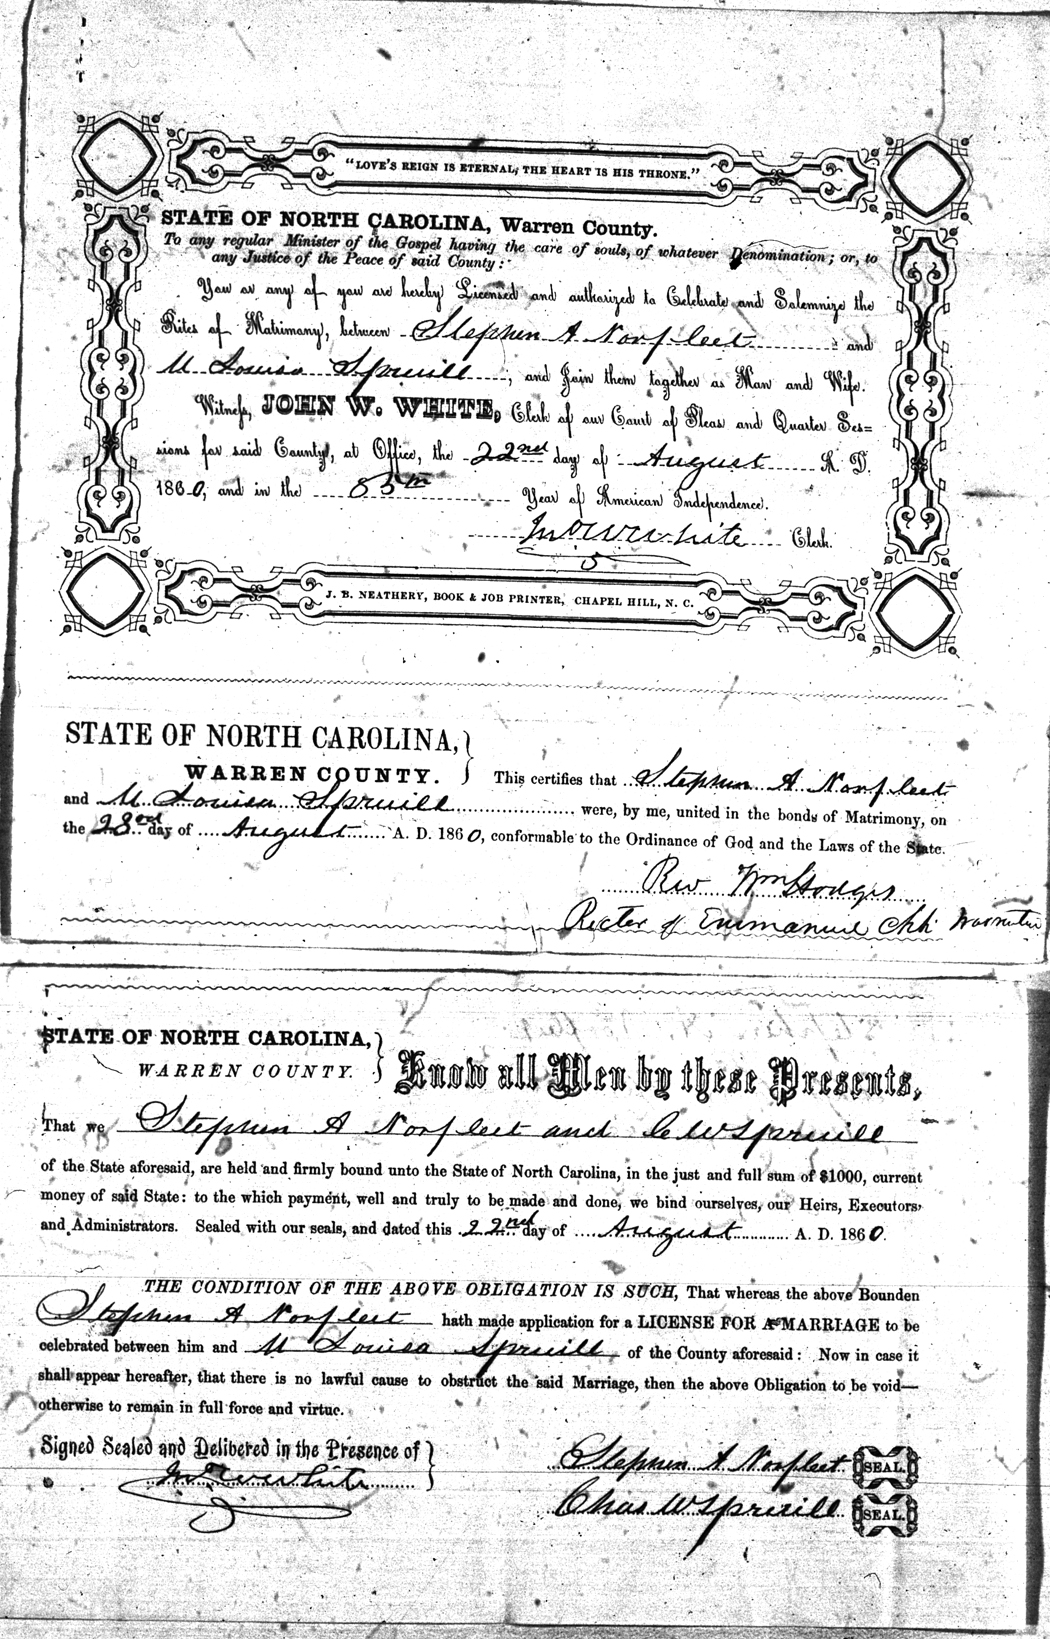 "LOVE'S REIGN IS ETERNAL, THE HEART IS HIS THRONE."
STATE OF NORTH CAROLINA, Warren County.
To any regular Minister of the Gospel having the care of souls, of whatever Denomination; or, to
any Justice of the Peace of said County:
You or any of you are hereby Licensed and authorized to Celebrate and Solemnize the
Rites of Matrimony, between Stephen A Norfleet and
M Louisa Spruill, and Join them together as Man and Wife.
Witness, JOHN W. WHITE, Clerk of our Court of Pleas and Quarter Ses=
sions for said County, at Office, the 22nd day of August A. D.
1860, and in the 85th Year of American Independence.
Jno W White Clerk.
J. B. NEATHERY, BOOK & JOB PRINTER, CHAPEL HILL, N. C.
STATE OF NORTH CAROLINA,
WARREN COUNTY. This certifies that Stephen A Norfleet
and M Louisa Spruill were, by me, united in the bonds of Matrimony, on
the 23rd day of August A. D. 1860, conformable to the Ordinance of God and the Laws of the State.
Rev Wm Hodges
Rector of Emmanuel Chh
STATE OF NORTH CAROLINA,
WARREN COUNTY. Know all Men by these Presents,
That we Stephen A Norfleet and C W Spruill
of the State aforesaid, are held and firmly bound unto the State of North Carolina, in the just and full sum of $1000, current
money of said State: to the which payment, well and truly to be made and done, we bind ourselves, our Heirs, Executors,
and Administrators. Sealed with our seals, and dated this 22nd day of August A. D. 1860.
THE CONDITION OF THE ABOVE OBLIGATION IS SUCH, That whereas the above Bounden
Stephen A Norfleet hath made application for a LICENSE FOR A MARRIAGE to be
celebrated between him and M Louisa Spruill of the County aforesaid: Now in case it
shall appear hereafter, that there is no lawful cause to obstruct the said Marriage, then the above Obligation to be void—
otherwise to remain in full force and virtue.
Signed Sealed and Delivered in the Presence of
Jno W White
Stephen A Norfleet SEAL.
Chas W Spruill SEAL.